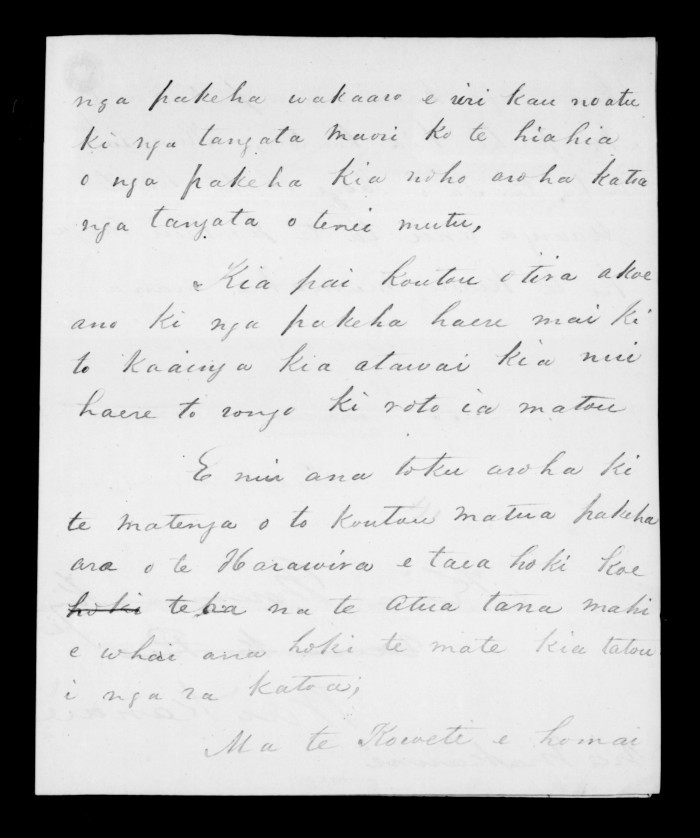 nga pakeha wakaaro e riri kau noatu
ki nga tangata maori ko te hiahia
o nga pakeha kia noho aroha katoa
nga tangata o tenei mutu,
Kia pai koutou otira akoe
ano ki nga pakeha haere mai ki
to kaainga kia atawai kia nui
haere to rongo ki roto ia matou
E nui ana toku aroha ki
te matenga o to koutou matua pakeha
ara o te Harawira e taea hoki koe
hoki te ha na te Atua tana mahi
e whai ana hoki te mate kia tatou
i nga ra katoa;
Ma te Koweti e homai